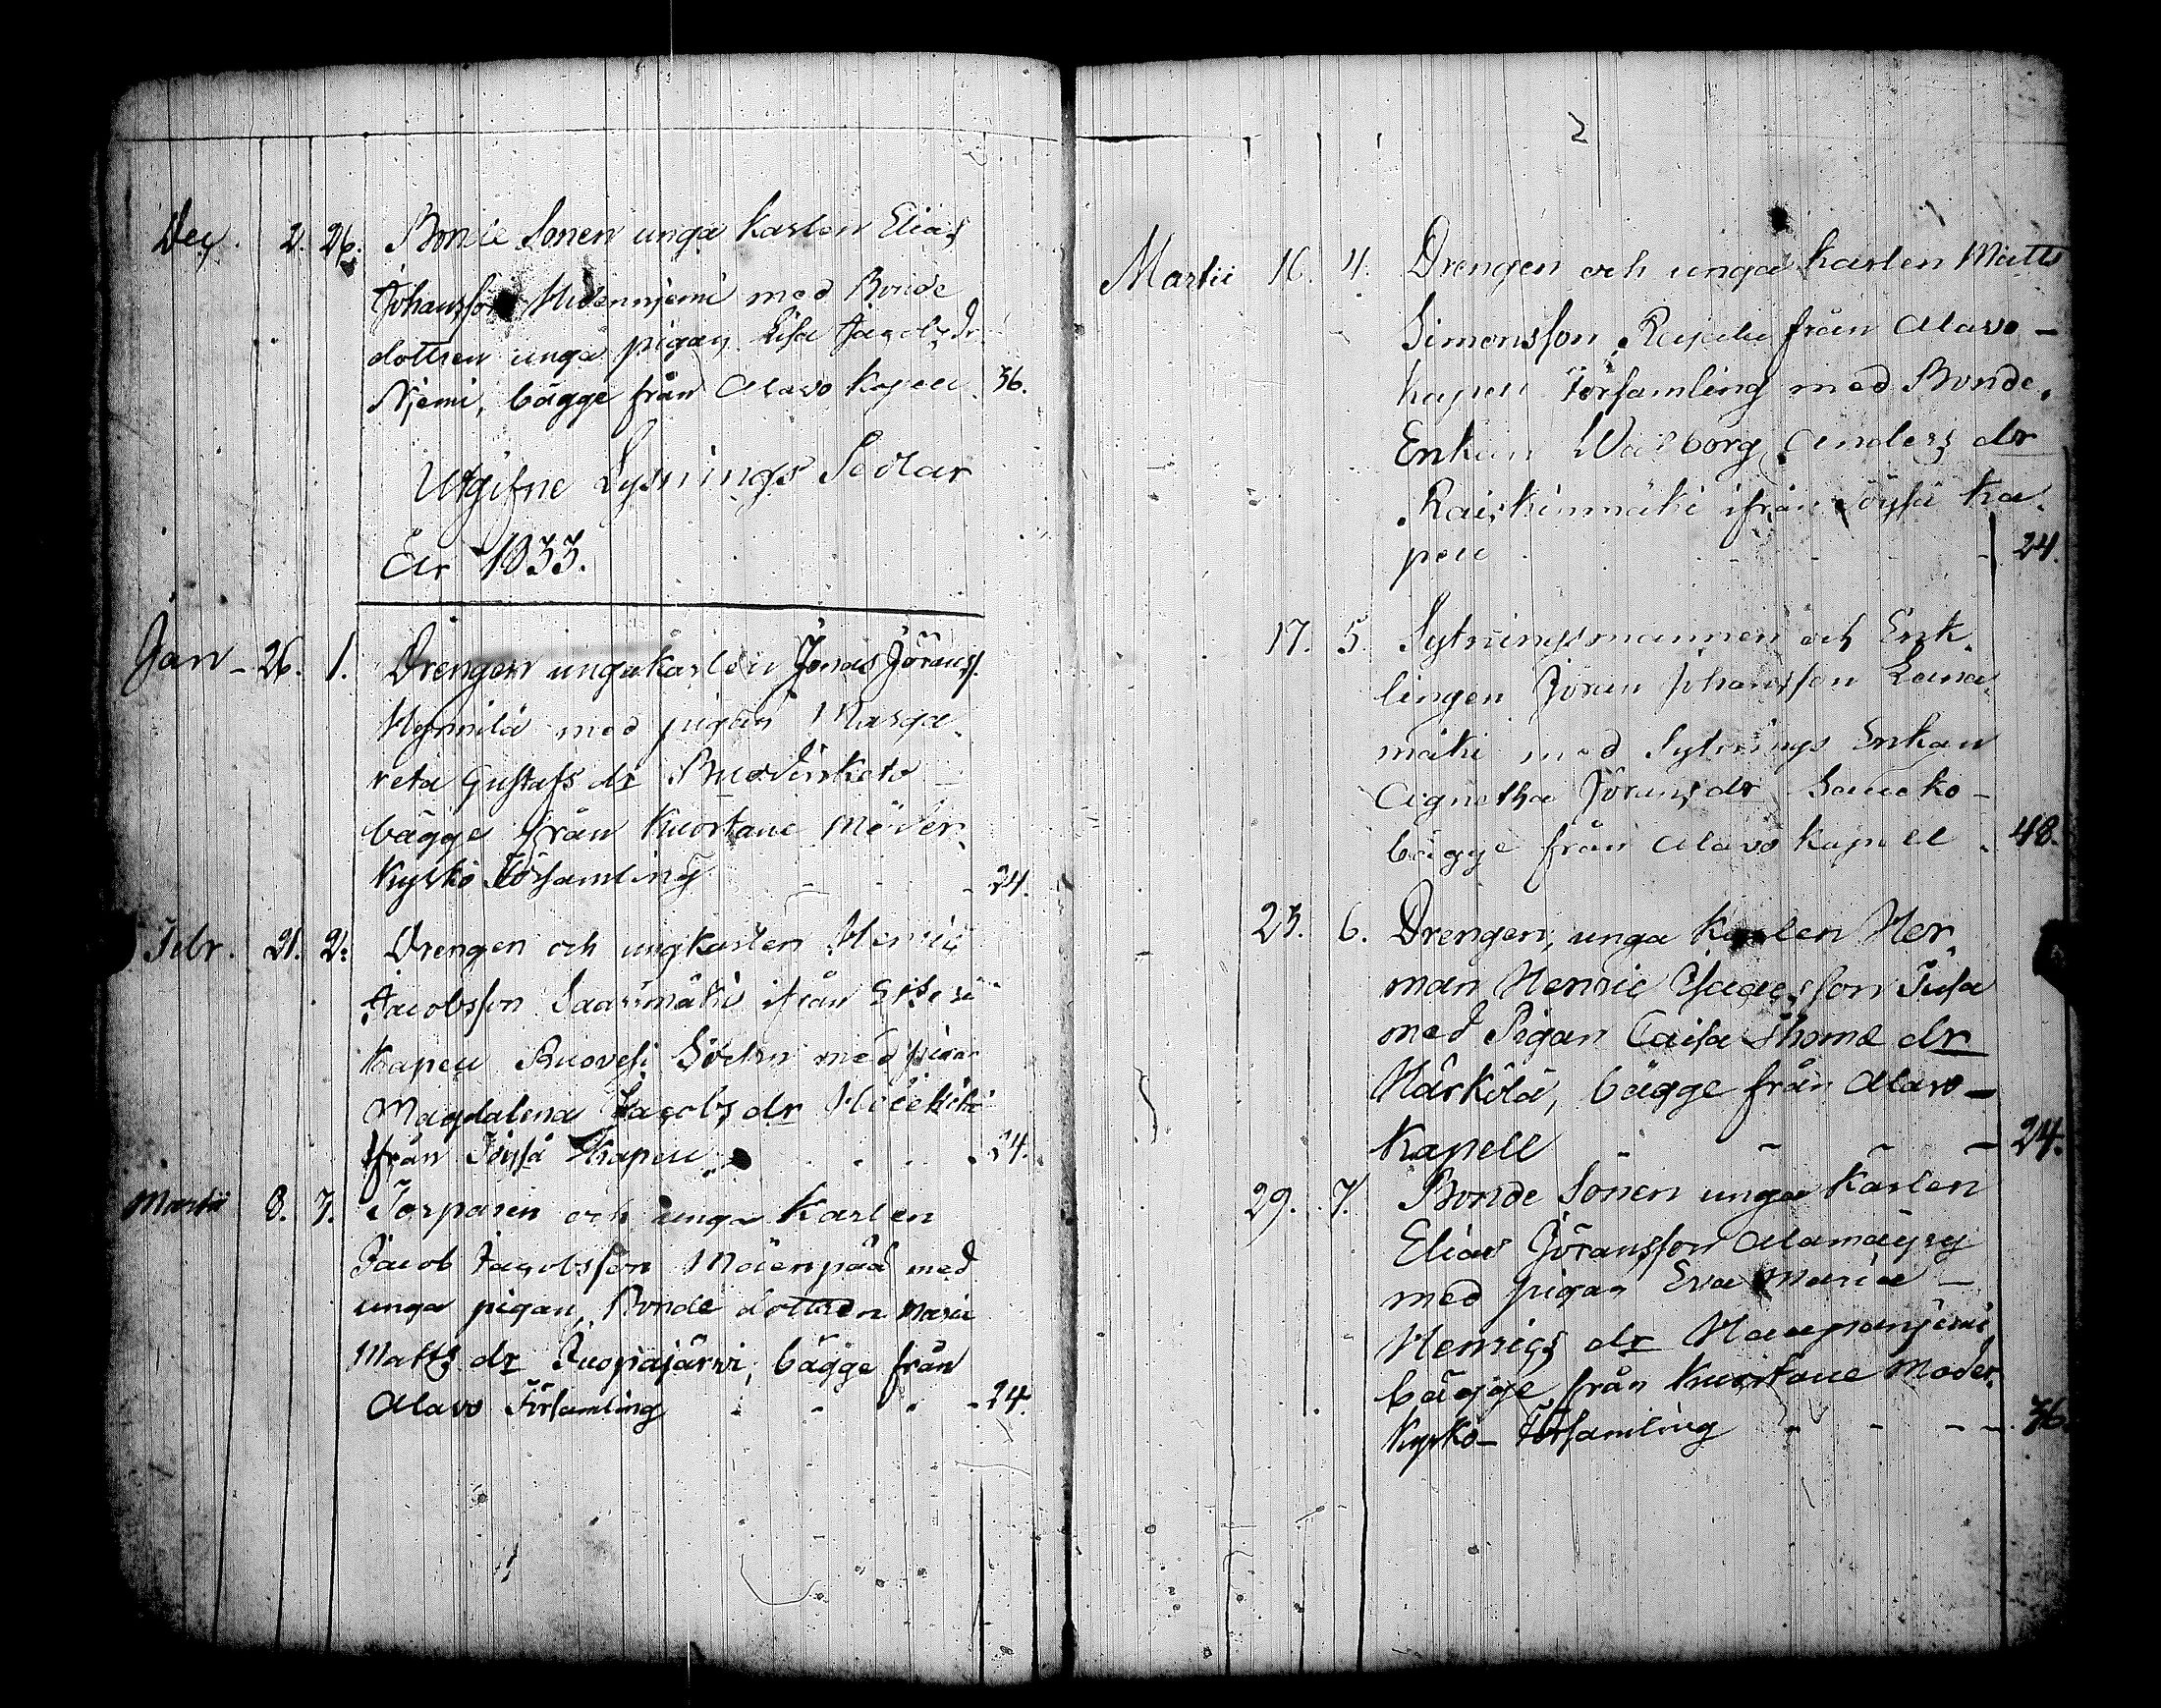 Dec. 2. 26. Bonde Sonen unga Karlen Elias
Johansson Hidennjemi med Bonde
dottren unga pigan Lisa Jacobsdr
Njemi, bägge från Alavo Kapell 36.
Utgifne Lysnings Sedlar
År 1833.
Jan - 26. 1. Drengen unga karlen Jonas Jöranss.
med pigan Marga-
reta Gustafs dr
bägge från Kuortane Moder-
Kyrko Församling - - - 24.
Febr. 21. 2. Drengen och ungkarlen Henric
Jacobsson Saarimäki ifrån Etseri
Kapell Ruovesi Sockn med pigan
Magdalena Jacobs dr
ifrån Töysä Kapell . . . . 24.
Martii 8. 3. Torparen och unga Karlen
Jacob Jacobsson Mäienpää med
unga pigan, Bonde dottren Maria
Matts dr Kuorasjärvi, bägge från
Alavo Församling - - - - 24.
2
Martii 16. 4. Drengen och unga Karlen Matts
Simonsson från Alavo -
kapell Församling med Bonde-
Enkan Walborg Anders dr
Raiskinmäki ifrån Töysä Ka-
pell - - - - 24.
17. 5. Sytningsmannen och Enk-
lingen Jöran Johansson
mäki med Sytnings Enkan
Agnetha Jörans dr Sauko-
bägge från Alavo Kapell - 48.
23. 6. Drengen, unga Karlen Her-
man Henric Isaacsson Tusa
med Pigan Caisa Thomæ dr
Härkölä, bägge från Alavo -
Kapell - - - 24.
29. 7. Bonde Sonen unga Karlen
Elias Jöransson Alamäyry
med pigan Eva Maria -
Henrics dr Haapanjemi
bägge från Kuortane Moder-
Kyrko- Församling - - - - 36.